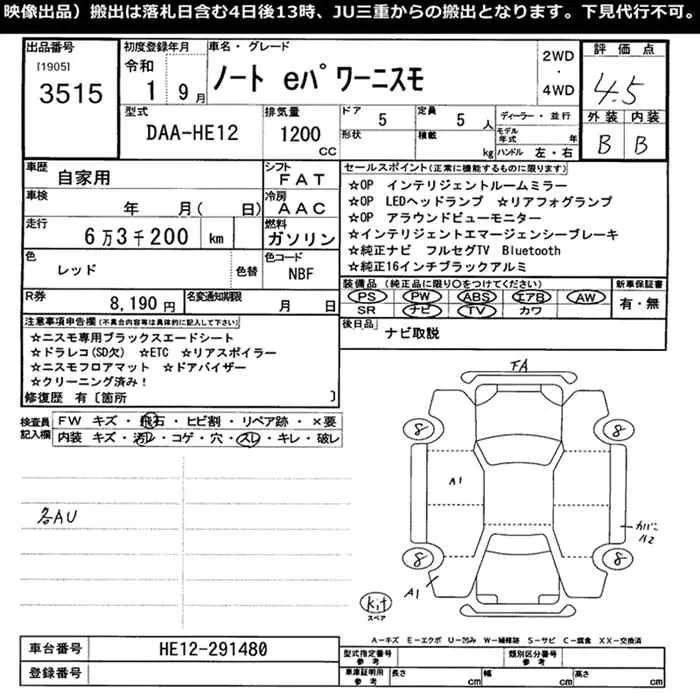 映像出品）搬出は落札日含む4日後13時、JU三重からの搬出となります。下見代行不可。
出品番号
[1905]
3515
初度登録年月
令和
1 9月
車名・グレード
ノート eパワーニスモ
2WD
・
4WD
評価点
4.5
外装 内装
B B
型式
DAA-HE12
排気量
1200
CC
ドア
5
形状
定員
5 人
積載
kg
ディーラー・並行
モデル年式 年
ハンドル 左・右
車歴
自家用
シフト
FAT
車検
年 月( 日)
冷房
AAC
走行
6万3千200 km
燃料
ガソリン
色
レッド
色替
色コード
NBF
R券
8,190円
名変通知期限
月 日
セールスポイント(正常に機能するものに限ります)
☆OP インテリジェントルームミラー
☆OP LEDヘッドランプ ☆リアフォグランプ
☆OP アラウンドビューモニター
☆インテリジェントエマージェンシーブレーキ
☆純正ナビ フルセグTV Bluetooth
☆純正16インチブラックアルミ
装備品(純正品に限り○をつけてください)
PS PW ABS エアB AW
SR ナビ TV カワ
新車保証書
有・無
後日品
ナビ取説
注意事項申告欄(不具合内容等は具体的に記入して下さい)
☆ニスモ専用ブラックスエードシート
☆ドラレコ(SD欠) ☆ETC ☆リアスポイラー
☆ニスモフロアマット ☆ドアバイザー
☆クリーニング済み！
修復歴 有〔箇所 〕
検査員記入欄
FW キズ・飛石・ヒビ割・リペア跡・×要
内装 キズ・汚レ・コゲ・穴・スレ・キレ・破レ
各AU
FA
8 8
A1
カバー
A2
8 8
A1
kit
スペア
A－キズ E－エクボ U－凹み W－補修跡 S－サビ C－腐食 XX－交換済
車台番号
HE12-291480
登録番号
型式指定番号
参考
類別区分番号
参考
車庫証明用
参考
長さ cm
幅 cm
高さ cm